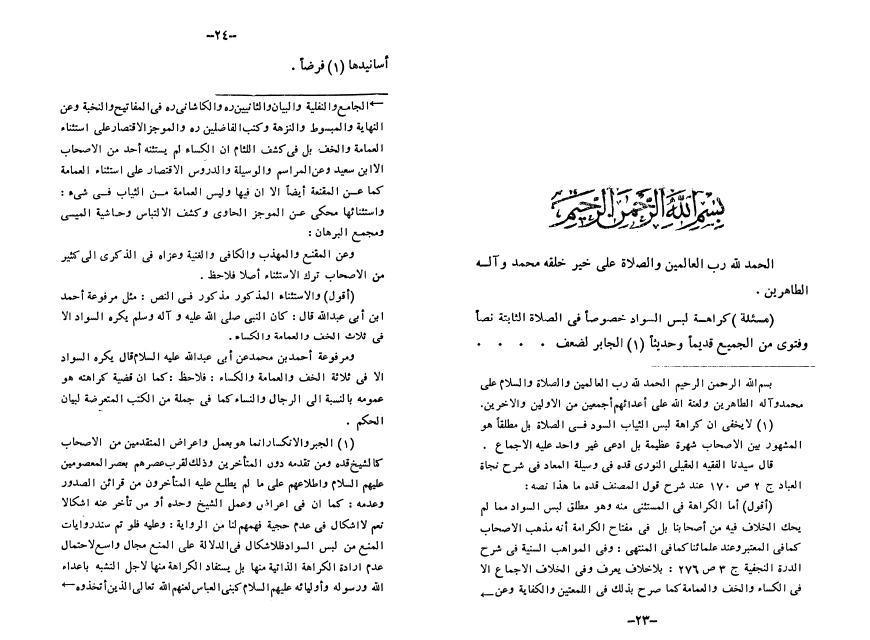 بسم الله الرحمن الرحيم
الحمد لله رب العالمين والصلاة على خير خلقه محمد وآلـه
الطاهرين .
(مسئلة) كراهـة لبس السواد خصوصاً فى الصلاة الثابتة نصاً
وفتوى من الجميع قديماً وحديثاً (١) الجابر لضعف . . . .
بسم الله الرحمن الرحيم الحمد لله رب العالمين والصلاة والسلام على
محمد وآله الطاهرين ولعنة الله على أعدائهم أجمعين من الاولين والاخرين.
(١) لايخفى ان كراهة لبس الثياب السود فـى الصلاة بل مطلقاً هو
المشهور بين الاصحاب شهرة عظيمة بل ادعى غير واحد عليه الاجماع .
قال سيدنا الفقيه العقيلى النورى قده فى وسيلة المعاد فى شرح نجاة
العباد ج ٢ ص ١٧٠ عند شرح قول المصنف قده ما هذا نصه :
(أقول) أما الكراهة فى المستثنى منه وهو مطلق لبس السواد مما لم
يحك الخلاف فيه من أصحابنا بل فى مفتاح الكرامة أنه مذهب الاصحاب
كمافى المعتبر وعند علمائنا كمافى المنتهى : وفى المواهب السنية فى شرح
الدرة النجفية ج ٣ ص ٢٧٦ : بلاخلاف يعرف وفى الخلاف الاجماع الا
فى الكساء والخف والعمامة كما صرح بذلك فى اللمعتين والكفاية وعن ←
--٢٣--
--٢٤--
أسانيدها (١) فرضاً .
← الجامع والنفلية والبيان والثانيين ره والكاشانى ره فى المفاتيح والنخبة وعن
النهاية والمبسوط والنزهة وكتب الفاضلين ره والموجز الاقتصار على استثناء
العمامة والخف بل فى كشف اللثام ان الكساء لم يستثنه أحد من الاصحاب
الا ابن سعيد وعن المراسم والوسيلة والدروس الاقتصار على استثناء العمامة
كما عـن المقنعة أيضاً الا ان فيها وليس العمامة مـن الثياب فـى شىء :
واستثنائها محكى عـن الموجز الحاوى وكشف الالتباس وحاشية الميسى
ومجمع البرهان :
وعن المقنع والمهذب والكافى والغنية وعزاه فى الذكرى الى كثير
من الاصحاب ترك الاستثناء أصلا فلاحظ .
(أقول) والاستثناء المذكور مذكور فـى النص : مثل مرفوعة أحمد
ابن أبى عبدالله قال: كان النبى صلى الله عليه و آله وسلم يكره السواد الا
فى ثلاث الخف والعمامة والكساء.
ومرفوعة أحمدبن محمد عن أبى عبدالله عليه السلام قال يكره السواد
الا فى ثلاثة الخف والعمامة والكساء : فلاحظ : كما ان قضية كراهته هو
عمومه بالنسبة الى الرجال والنساء كما فى جملة من الكتب المتعرضة لبيان
الحكم .
(١) الجبر والانكسار انما هو بعمل واعراض المتقدمين من الاصحاب
كالشيخ قده ومن تقدمه دون المتأخرين وذلك لقرب عصرهم بعصر المعصومين
عليهم السلام واطلاعهم على ما لم يطلع عليه المتأخرون من قرائن الصدور
وعدمه : كما ان فى اعراض وعمل الشيخ وحده أو من تأخر عنه اشكالا
نعم لااشكال فى عدم حجية فهمهم لنا من الرواية : وعليه فلو تم سند روايات
المنع من لبس السواد فللاشكال فى الدلالة على المنع مجال واسع لاحتمال
عدم ارادة الكراهة الذاتية منها بل يستفاد الكراهة منها لاجل التشبه باعداء
الله ورسوله وأوليائه عليهم السلام كبنى العباس لعنهم الله تعالى الذين أتخذوه ←